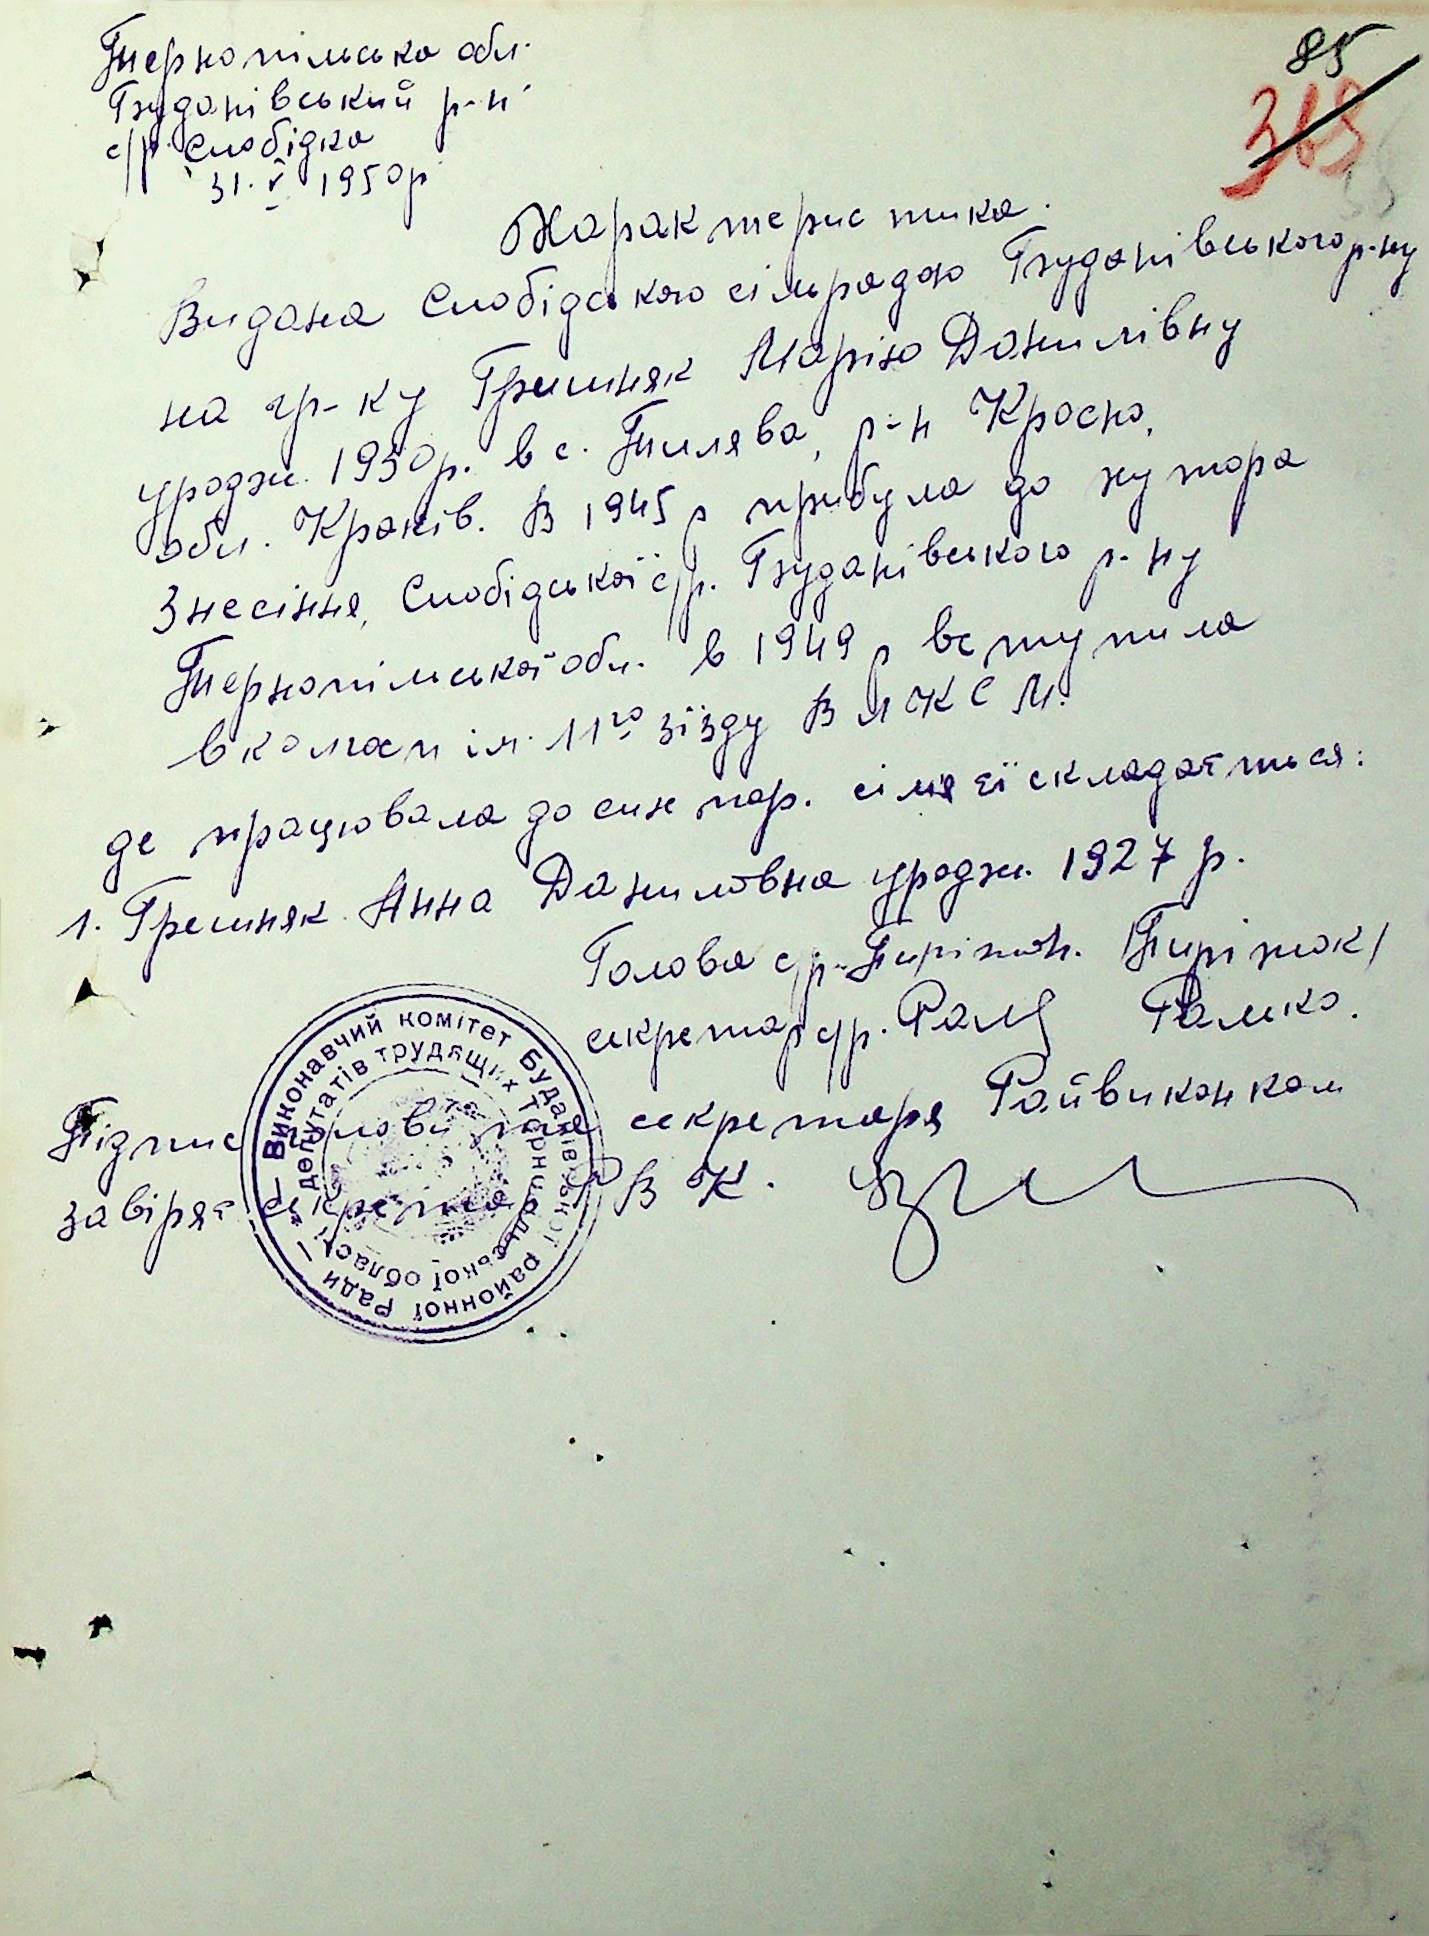 85
Тернопільська обл.
Буданівський р-н
с/р. Слобідка
31. V 1950 р
Характеристика.
Видана Слобідською сільрадою Буданівського р-ну
на гр-ку Гришняк Марію Данилівну
уродж. 1930 р. в с. Тилява, р-н Кросно,
обл. Краків. В 1945 р прибула до хутора
Знесіння, Слобідської с/р. Буданівського р-ну
Тернопільської обл. в 1949 р вступила
в колгосп ім. 11го зїзду ВЛКСМ.
де працювала до сих пор. сімя її складається:
1. Гришняк Анна Даниловна уродж. 1927 р.
Голова с/р. Пиріжок. /Пиріжок/
секретар с/р. Ралко.
Підпис голови та секретаря Райвиконком
завіряє секретар РВК.
Виконавчий комітет Буданівської районної Ради
депутатів трудящих Тернопільської області